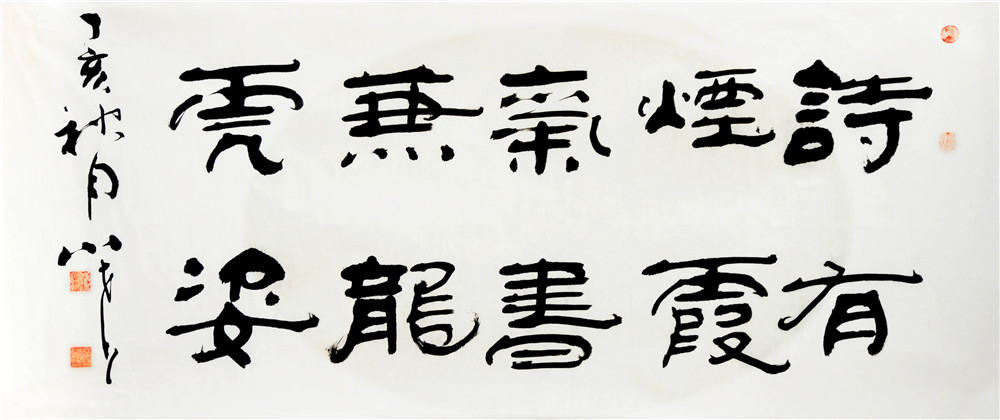 詩有
煙霞
氣書
兼龍
虎姿
丁亥秋月